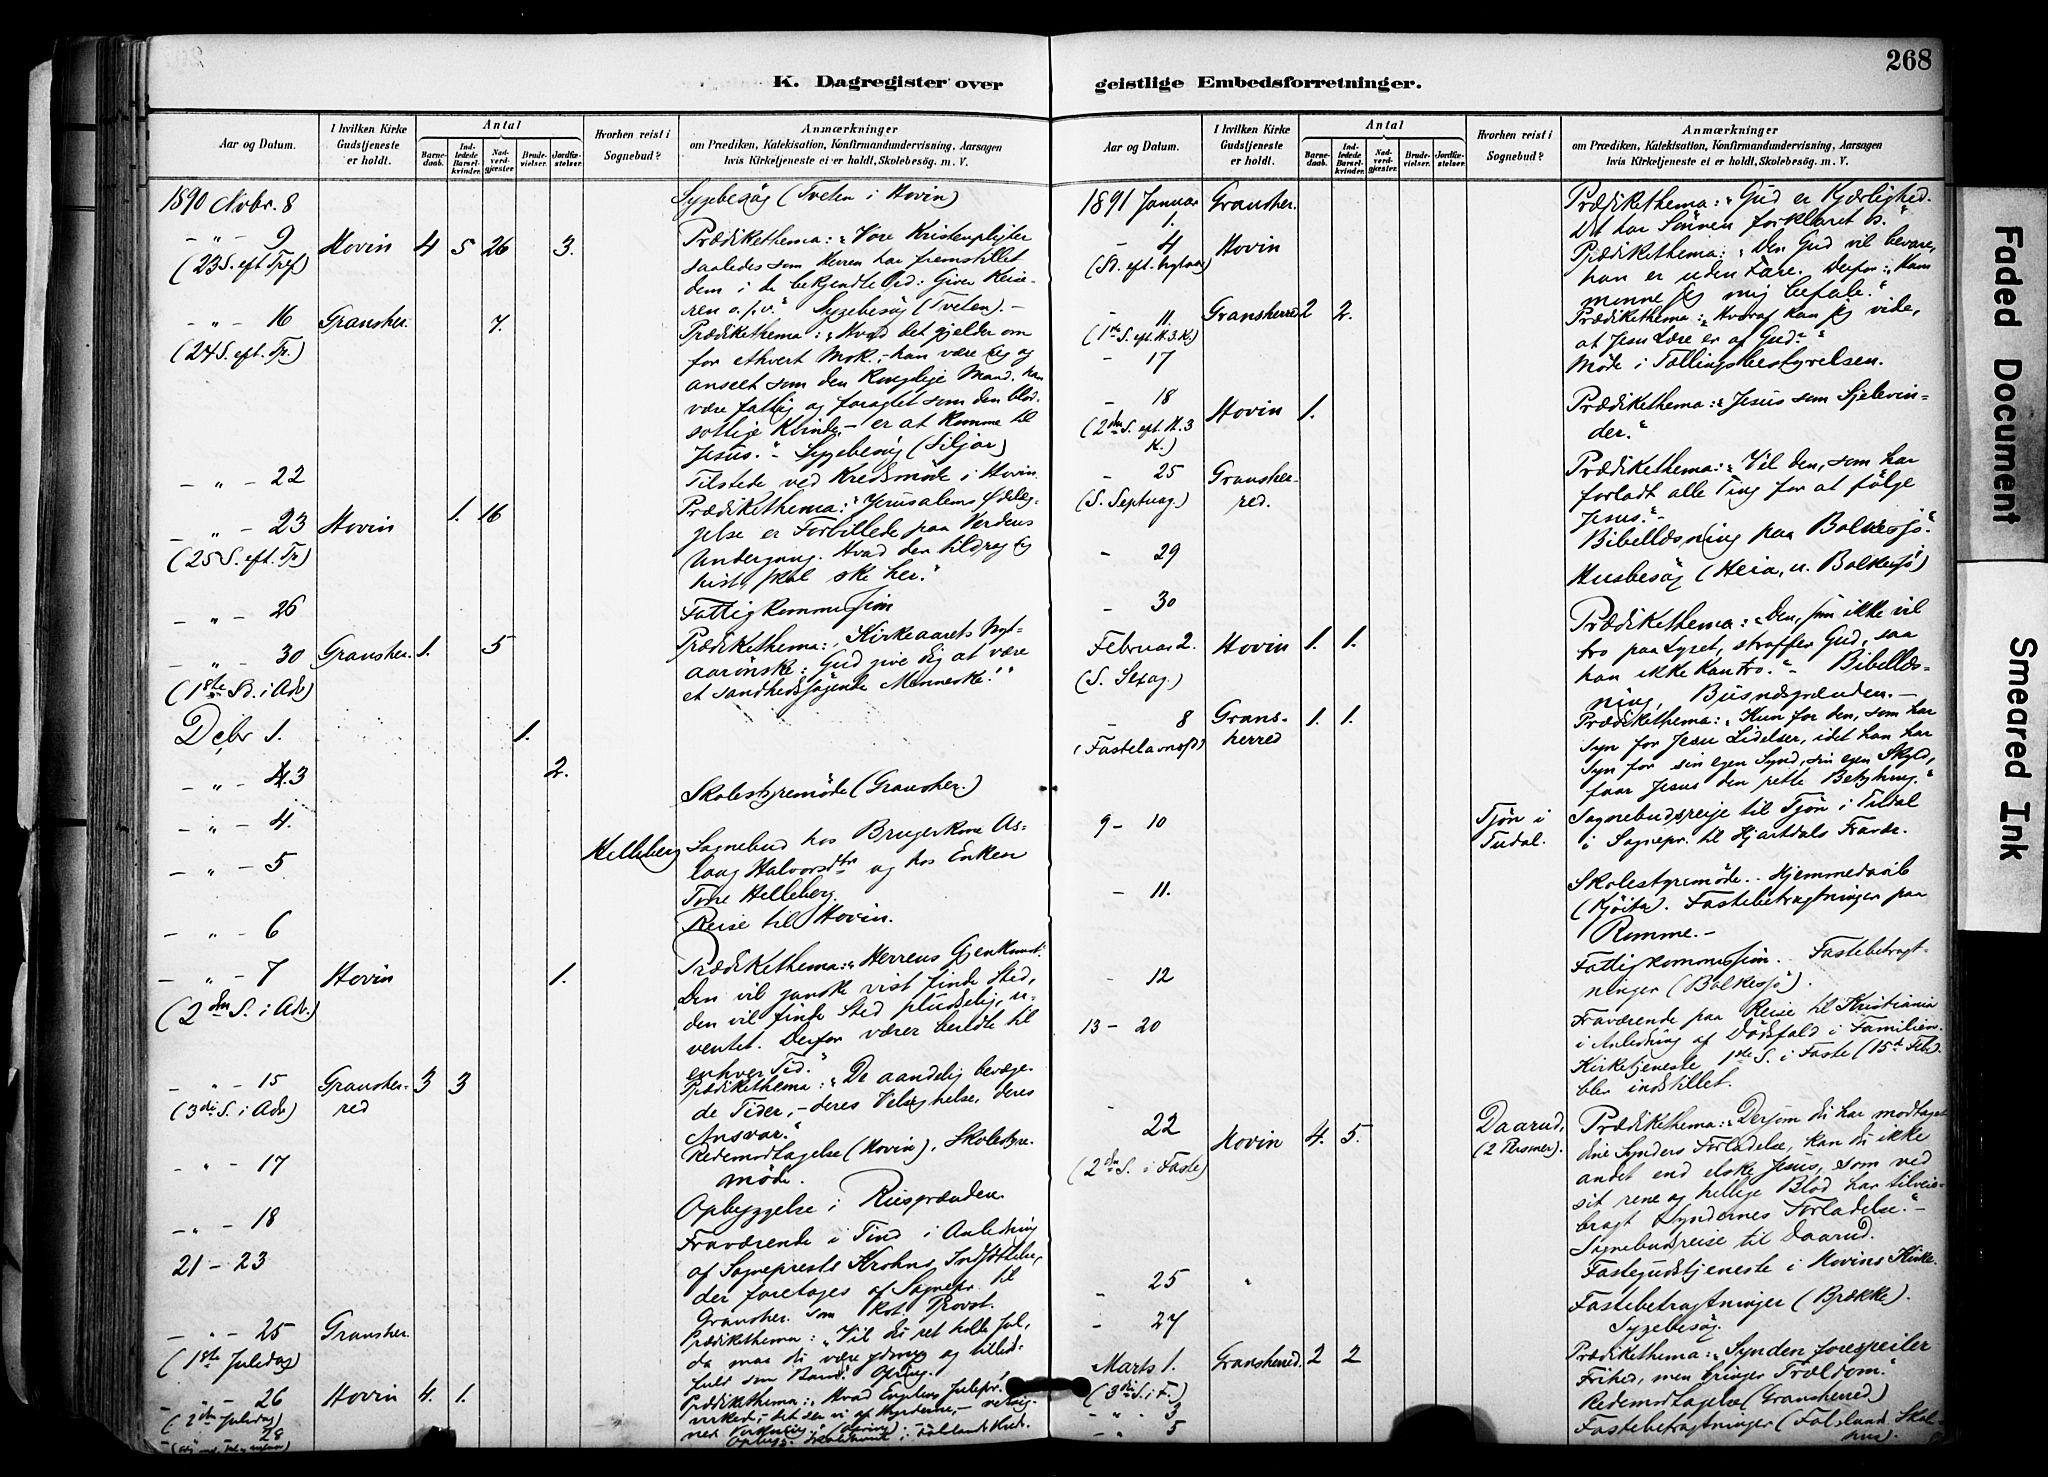 268
K. Dagregister over
geistlige Embedsforretninger.
Aar og Datum.
I hvilken Kirke
Gudstjeneste
er holdt.
Antal
Barne-
daab.
Ind-
ledede
Barsel-
kvinder.
Nad-
verd-
gjester.
Brude-
vielser.
Jordfæ-
stelser.
Hvorhen reist i
Sognebud?
Anmærkninger
om Prædiken, Katekisation, Konfirmandundervisning, Aarsagen
hvis Kirketjeneste ei er holdt, Skolebesøg. m. V.
1890 Novbr. 8
Sygebesøg (Tveten i Hovin)
- " - 9 Hovin 4 5 26 3.
(23 S. eft. Tref)
Prædikethema: "Vore Kristenpligter
saaledes som Herren har fremstillet
dem i de bekjendte Ord: Giver Keise-
ren o.s.v." Sygebesøg (Tveten).-
- " - 16 Gransher. 7.
(24 S. eft. Tr.)
Prædikethema: "Hvad det gjelder om
for ethvert Msk.,- han være sig og
anseet som den kongelige Mand, han
være fattig og foragtet som den blod-
sottige Kvinde,- er at komme til
Jesus."- Sygebesøg (Siljar)
- " - 22
Tilstede ved Kredsmøde i Hovin.
- " - 23 Hovin 1. 16
(25 S. eft. Tr)
Prædikethema: "Jerusalems Ødelæg-
gelse er Forbillede paa Verdens
Undergang. Hvad der tildrog sig
hist, skal ske her."
- " - 26
Fattigkommission
- " - 30 Gransher. 1. 5
(1ste Sd. i Adv)
Prædikethema: "Kirkeaarets Nyt-
aarsønske: Gud give dig at være
et sandhedssøgende Menneske!"
Debr 1. 1.
- " - 3 2.
Skolestyremøde (Gransher.)
- " - 4.
- " - 5
Helleberg
Sognebud hos Brugerkone As-
laug Halvorsdtr og hos Enken
Tone Helleberg.
- " - 6
Reise til Hovin.
- " - 7 Hovin 1.
(2den S. i Adv.)
Prædikethema: "Herrens Gjenkomst:
Den vil ganske vist finde Sted,
den vil finde Sted pludselig, u-
ventet. Derfor værer beredte til
enhver Tid."
- " - 15 Gransher-
red 3 3
(3die S. i Adv)
Prædikethema: "De aandelig bevæge-
de Tider,- deres Velsignelse, deres
Ansvar."
- " - 17
Redemodtagelse (Hovin). Skolestyre-
møde.
- " - 18
Opbyggelse i Riisgrænden.
21 - 23
Fraværende i Tind i Anledning
af Sogneprest Krohns Indsættelse,
der foretoges af Sognepr. til
Gransher. som kst. Provst.
- " - 25 Gransher.
(1ste Juledag)
Prædikethema: "Vil du ret holde Jul,
da maa du være ydmyg og tillids-
fuld som Barn.
- 26 Hovin 4. 1.
(2den Juledag)
Prædikethema: "Hvad Englens Julepr.
virkede,- det ser vi af Hyrderne,-
28
Aar og Datum.
I hvilken Kirke
Gudstjeneste
er holdt.
Antal
Barne-
daab.
Ind-
ledede
Barsel-
kvinder.
Nad-
verd-
gjester.
Brude-
vielser.
Jordfæ-
stelser.
Hvorhen reist i
Sognebud?
Anmærkninger
om Prædiken, Katekisation, Konfirmandundervisning, Aarsagen
hvis Kirketjeneste ei er holdt, Skolebesøg. m. V.
1891 Januar
1. Gransher.
Prædikethema: "Gud er Kjærlighed.
Det har Sønnen forklaret os."
- 4 Hovin
(S. eft. Nytaar)
Prædikethema: "Den Gud vil bevare,
han er uden Fare. Derfor:
jeg mig befale."
- 11. Gransherred 2 2.
(1ste S. eft. H.3.K.)
Prædikethema: "Hvoraf kan jeg vide,
at Jesu Lære er af Gud-"
- 17
Møde i Tællingsbestyrelsen.
- 18 Hovin 1.
(2den S. eft. H.3
K.)
Prædikethema: "Jesus som Sjelevin-
der."
- 25 Gransher-
red.
(S. Septuag.)
Prædikethema: "Vil den, som har
forladt alle Ting for at følge
Jesus."-
- 29
Bibellæsning paa Bolkesjø.
- 30
Husbesøg (Heia, u. Bolkesjø)
Februar 2. Hovin 1. 1.
(S. Sexag.)
Prædikethema: "Den, som ikke vil
tro paa Lyset, straffer Gud, saa
han ikke kan tro."- Bibellæs-
ning, Busnæsgrænden.-
- 8 Grans-
herred 1. 1.
(Fastelavnsd)
Prædikethema: "Kun for den, som har
Syn for Jesu Lidelser, idet han har
Syn for sin egen Synd, sin egen Skyld,
faar Jesus den rette Betydning."
9 - 10
Tjøn i
Tudal.
Sognebudsreise til Tjøn i Tudal
i Sognepr. til Hjartdals Fravær.
- 11.
Skolestyremøde.. Hjemmedaab
(Kjøita). Fastebetragtninger paa
Romme.-
- 12
Fattigkommission. Fastebetragt-
ninger (Bolkesjø).
13 - 20
Fraværende paa Reise til Kristiania
i Anledning af Dødsfald i Familien.
Kirketjeneste 1ste S. i Faste (15de Febr.)
blev indstillet.
- 22 Hovin 4. 5.
(2den S. i Faste)
Daarud,
(2 Personer).
Prædikethema: "Dersom du har modtaget
dine Synders Forladelse, kan du ikke
andet end elske Jesus, som ved
sit rene og hellige Blod har tilveie-
bragt Syndernes Forladelse."-
Sognebudsreise til Daarud.
- 25 "
Fastegudstjeneste i Hovins Kirke.
- 27
Fastebetragtninger (Brække).
Sygebesøg.
Marts 1. Gransherred. 2 2
(3die S. i F.)
Prædikethema: "Synden forespeiler
Frihed, men bringer Trældom."
- " - 3
Redemodtagelse (Gransherred)
- " 5
Fastebetragtninger (Folslund Skol-
hus).
Faded Document
Smeared Ink